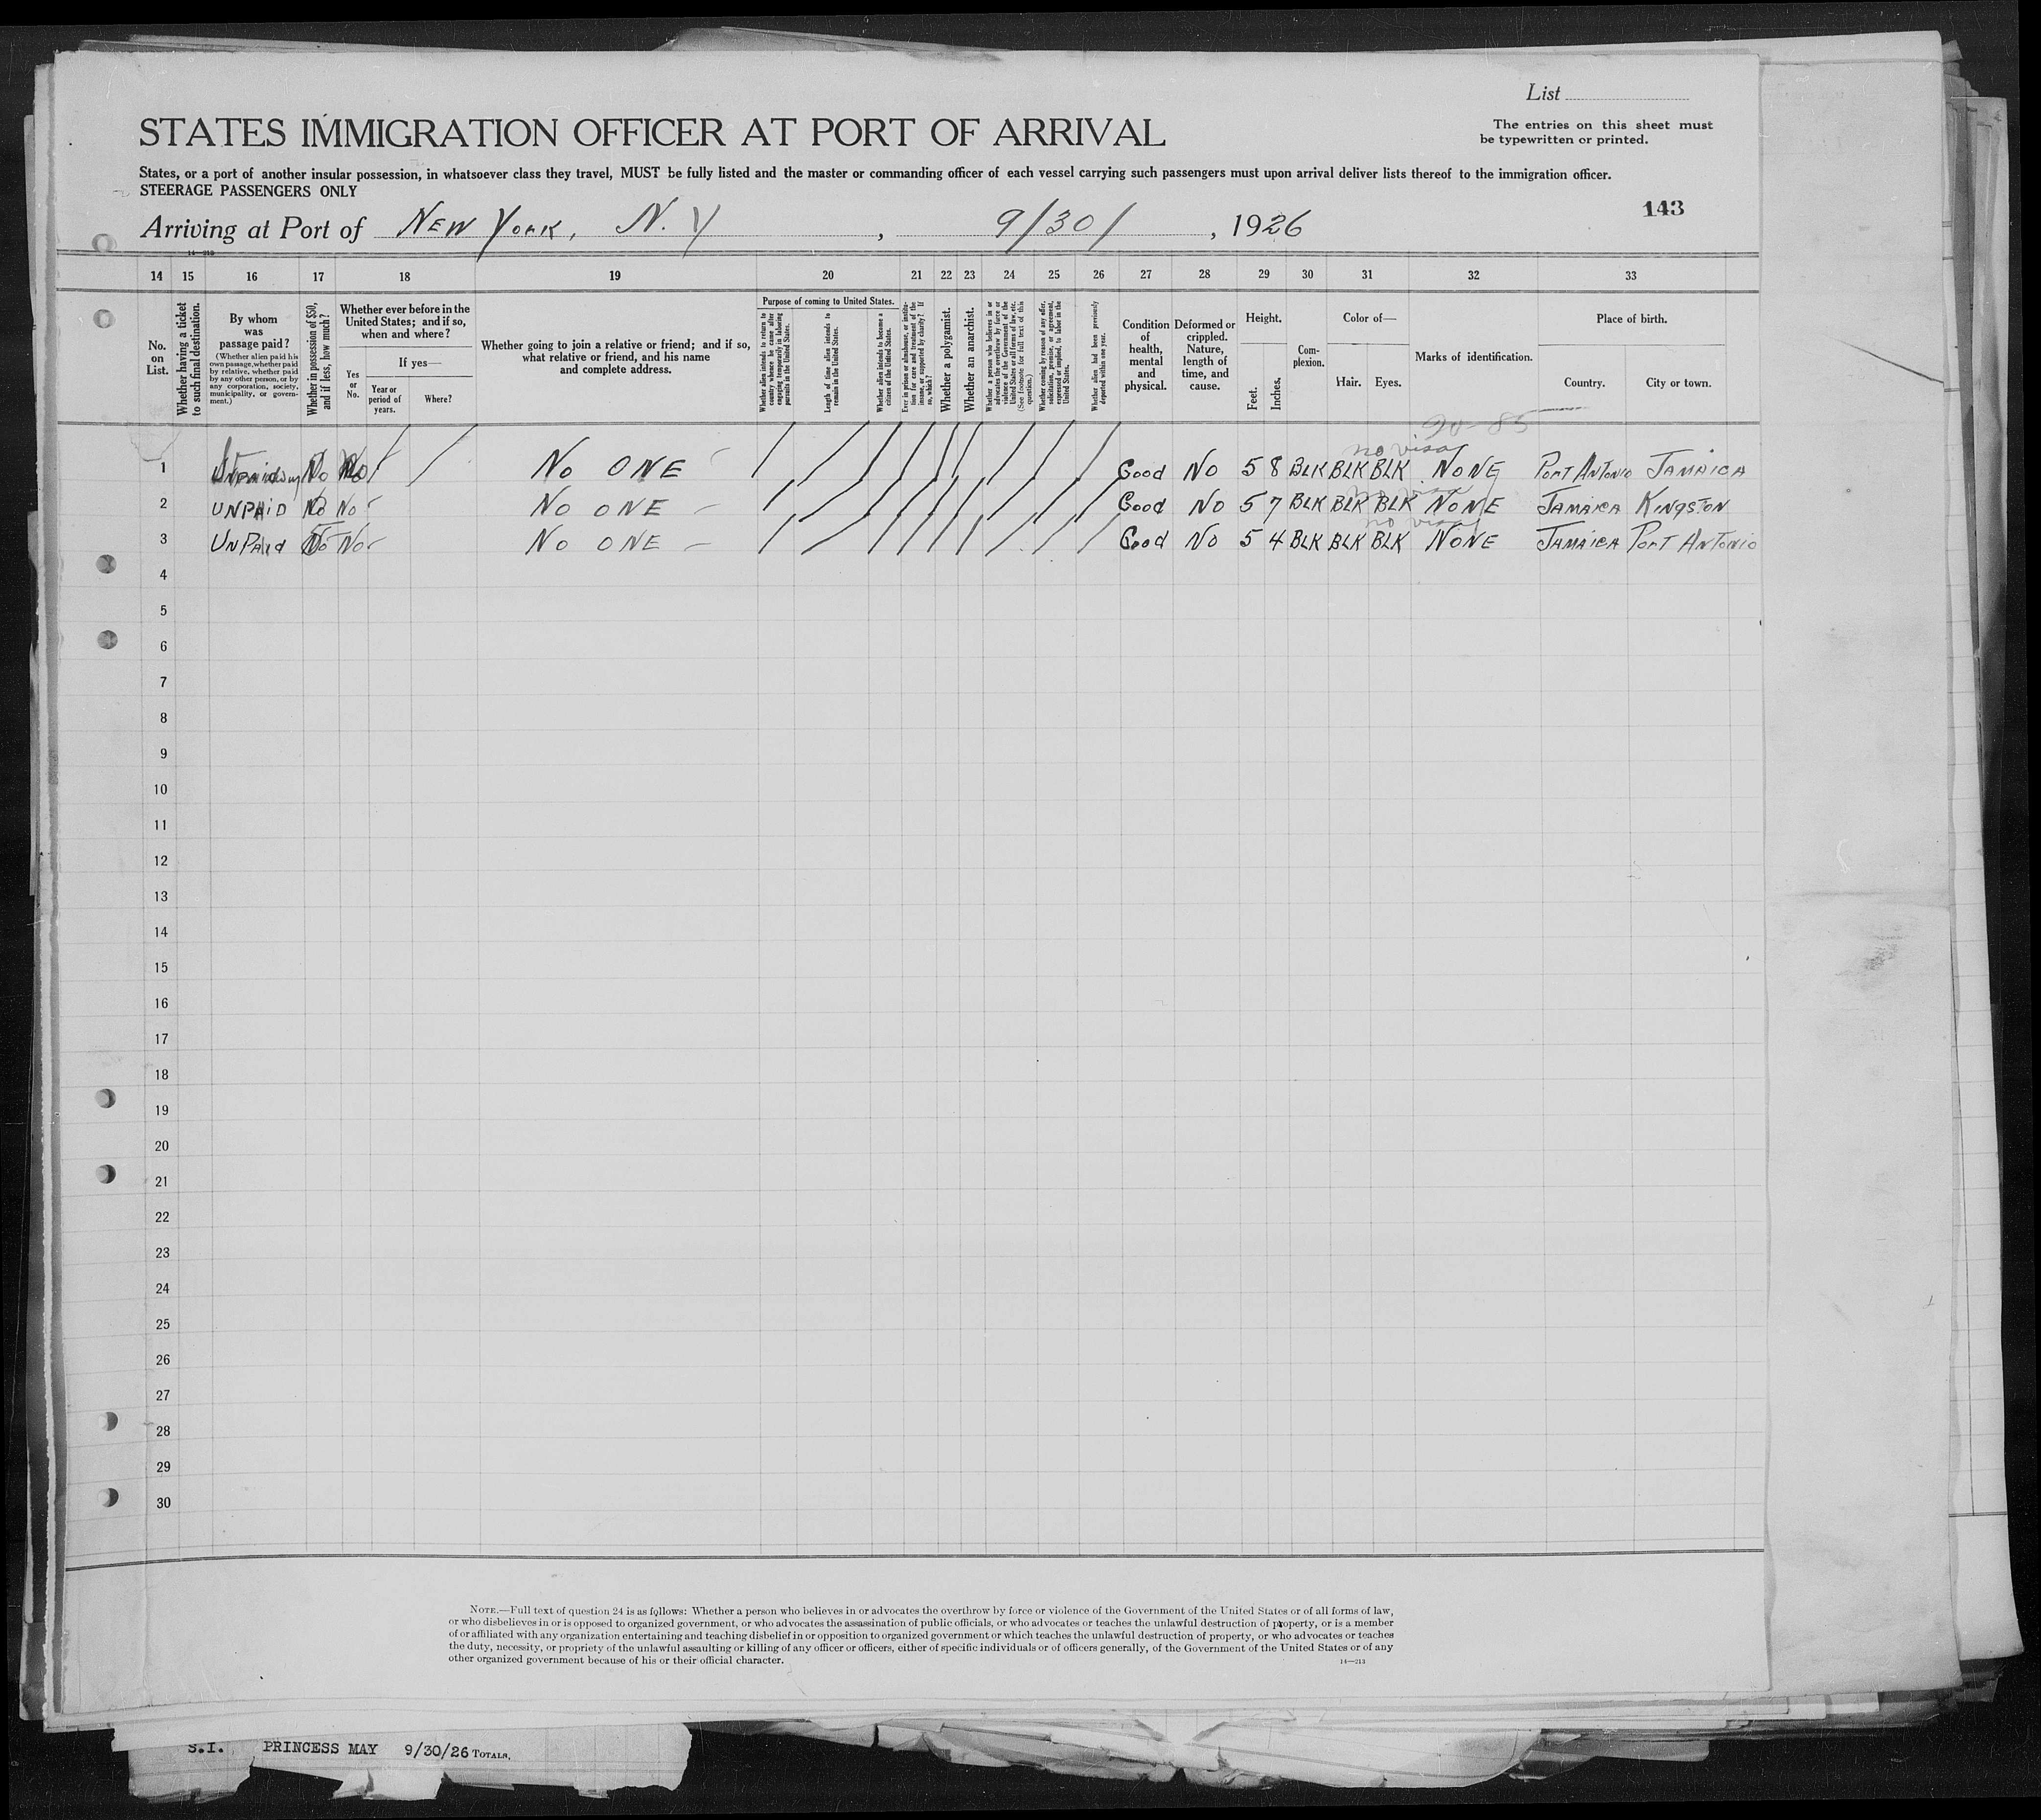 List
STATES IMMIGRATION OFFICER AT PORT OF ARRIVAL
The entries on this sheet must
be typewritten or printed.
States, or a port of another insular possession, in whatsoever class they travel, MUST be fully listed and the master or commanding officer of each vessel carrying such passengers must upon arrival deliver lists thereof to the immigration officer.
STEERAGE PASSENGERS ONLY
143
Arriving at Port of NEW YORK, N.Y , 9/30/ , 1926
14—213
14 15 16 17 18 19 20 21 22 23 24 25 26 27 28 29 30 31 32 33
No. on List.
Whether having a ticket to such final destination.
By whom was passage paid?
(Whether alien paid his own passage, whether paid by relative, whether paid by any other person, or by any corporation, society, municipality, or government.)
Whether in possession of $50, and if less, how much?
Whether ever before in the United States; and if so, when and where?
Yes or No.
If yes—
Year or period of years.
Where?
Whether going to join a relative or friend; and if so, what relative or friend, and his name and complete address.
Purpose of coming to United States.
Whether alien intends to return to country whence he came after engaging temporarily in laboring pursuits in the United States.
Length of time alien intends to remain in the United States.
Whether alien intends to become a citizen of the United States.
Ever in prison or almshouse, or institution for care and treatment of the insane, or supported by charity? If so, which?
Whether a polygamist.
Whether an anarchist.
Whether a person who believes in or advocates the overthrow by force or violence of the Government of the United States or all forms of law, etc. (See footnote for full text of this question.)
Whether coming by reason of any offer, solicitation, promise, or agreement, expressed or implied, to labor in the United States.
Whether alien had been previously deported within one year.
Condition of health, mental and physical.
Deformed or crippled. Nature, length of time, and cause.
Height.
Feet.
Inches.
Complexion.
Color of—
Hair.
Eyes.
Marks of identification.
Place of birth.
Country.
City or town.
no visa
1 No No NO ONE Good NO 5 8 BLK BLK BLK NONE PORT ANTONIO JAMAICA
2 UNPAID No No NO ONE Good NO 5 7 BLK BLK BLK NONE JAMAICA KINGSTON
no visa
3 UNPAID No No NO ONE Good NO 5 4 BLK BLK BLK NONE JAMAICA PORT ANTONIO
4
5
6
7
8
9
10
11
12
13
14
15
16
17
18
19
20
21
22
23
24
25
26
27
28
29
30
NOTE.—Full text of question 24 is as follows: Whether a person who believes in or advocates the overthrow by force or violence of the Government of the United States or of all forms of law,
or who disbelieves in or is opposed to organized government, or who advocates the assassination of public officials, or who advocates or teaches the unlawful destruction of property, or is a member
of or affiliated with any organization entertaining and teaching disbelief in or opposition to organized government or which teaches the unlawful destruction of property, or who advocates or teaches
the duty, necessity, or propriety of the unlawful assaulting or killing of any officer or officers, either of specific individuals or of officers generally, of the Government of the United States or of any
other organized government because of his or their official character.
14—213
S.I. PRINCESS MAY 9/30/26 TOTALS,